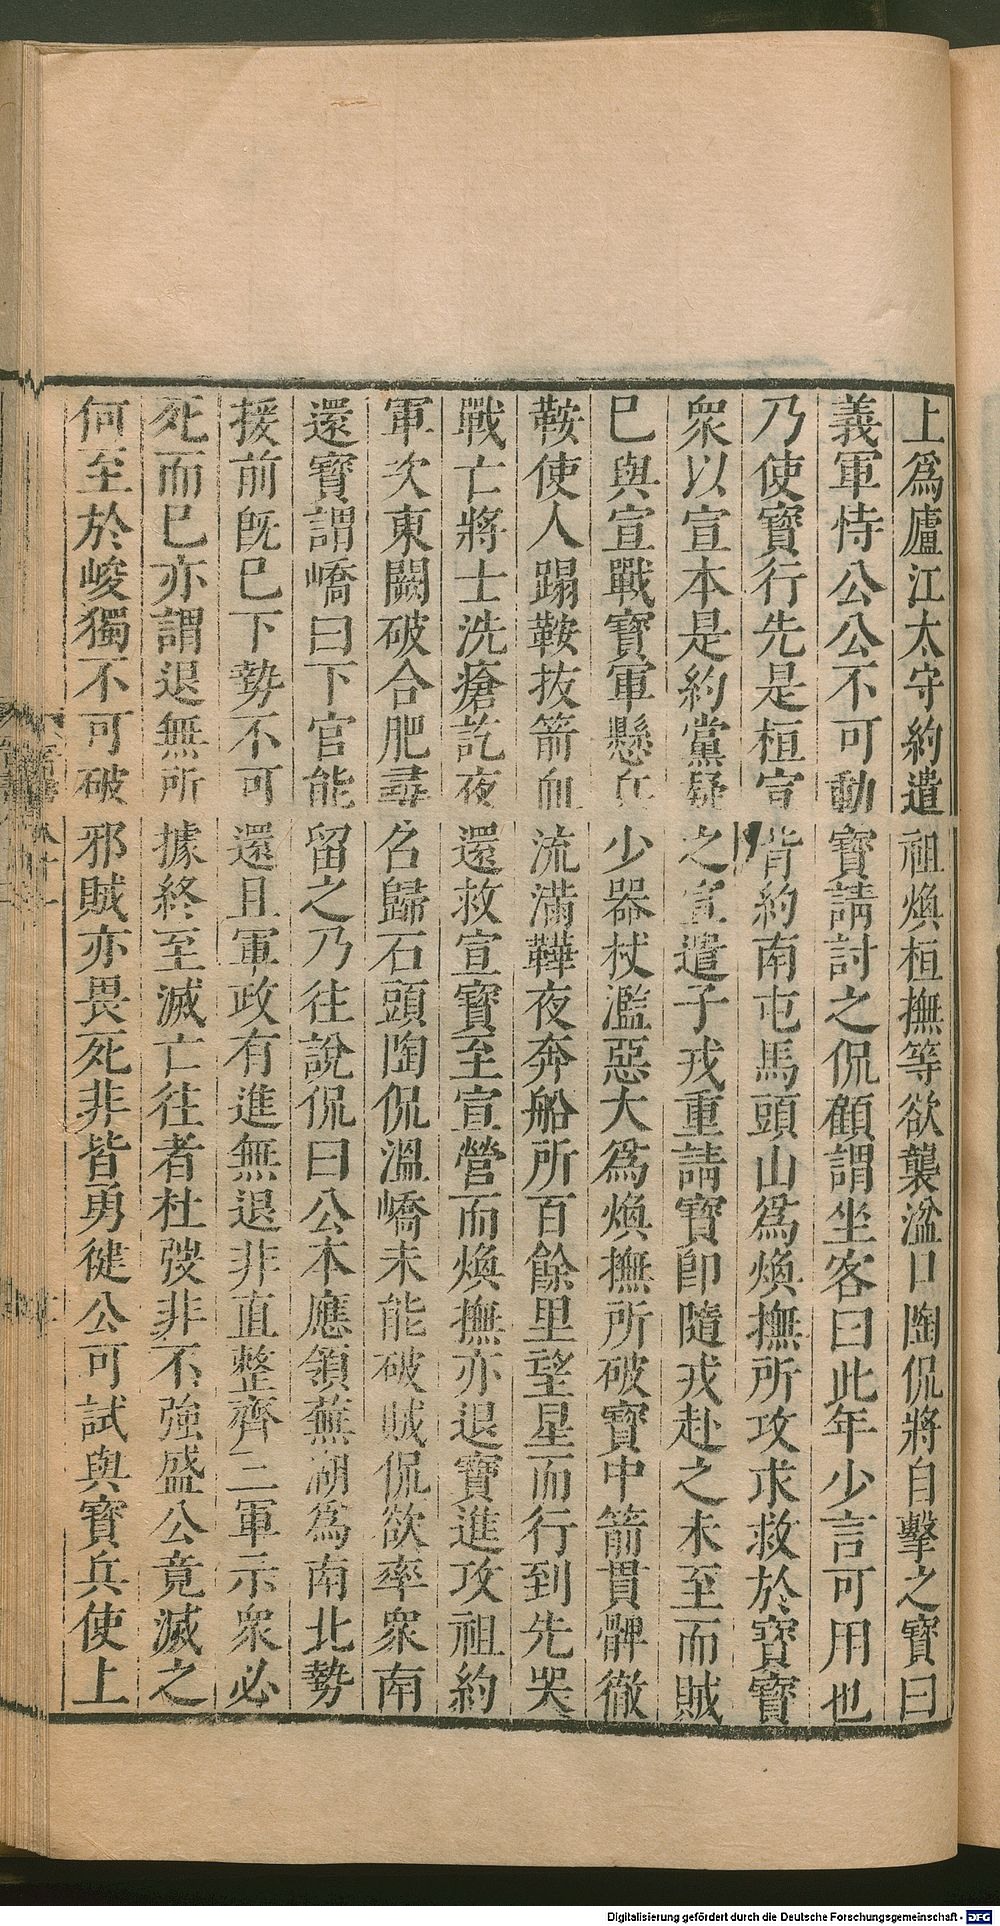 上爲廬江太守約遣祖煥桓撫等欲襲湓口陶侃將自擊之寶曰
義軍恃公公不可動寶請討之侃顧謂坐客曰此年少言可用也
乃使寶行先是桓宣背約南屯馬頭山爲煥撫所攻求救於寶寶
衆以宣本是約黨疑之宣遣子戎重請寶卽隨戎赴之未至而賊
巳與宣戰寶軍懸兵少器杖濫惡大爲煥撫所破寶中箭貫髀徹
鞍使人蹋鞍拔箭血流滿鞾夜奔船所百餘里望星而行到先哭
戰亡將士洗瘡訖夜還救宣寶至宣營而煥撫亦退寶進攻祖約
軍次東闕破合肥尋名歸石頭陶侃溫嶠未能破賊侃欲率衆南
還寶謂嶠曰下官能留之乃往說侃曰公本應領蕪湖爲南北勢
援前旣巳下勢不可還且軍政有進無退非直整齊三軍示衆必
死而巳亦謂退無所據終至滅亡往者杜弢非不強盛公竟滅之
何至於峻獨不可破邪賊亦畏死非皆勇徤公可試與寶兵使上
Digitalisierung gefördert durch die Deutsche Forschungsgemeinschaft - DFG